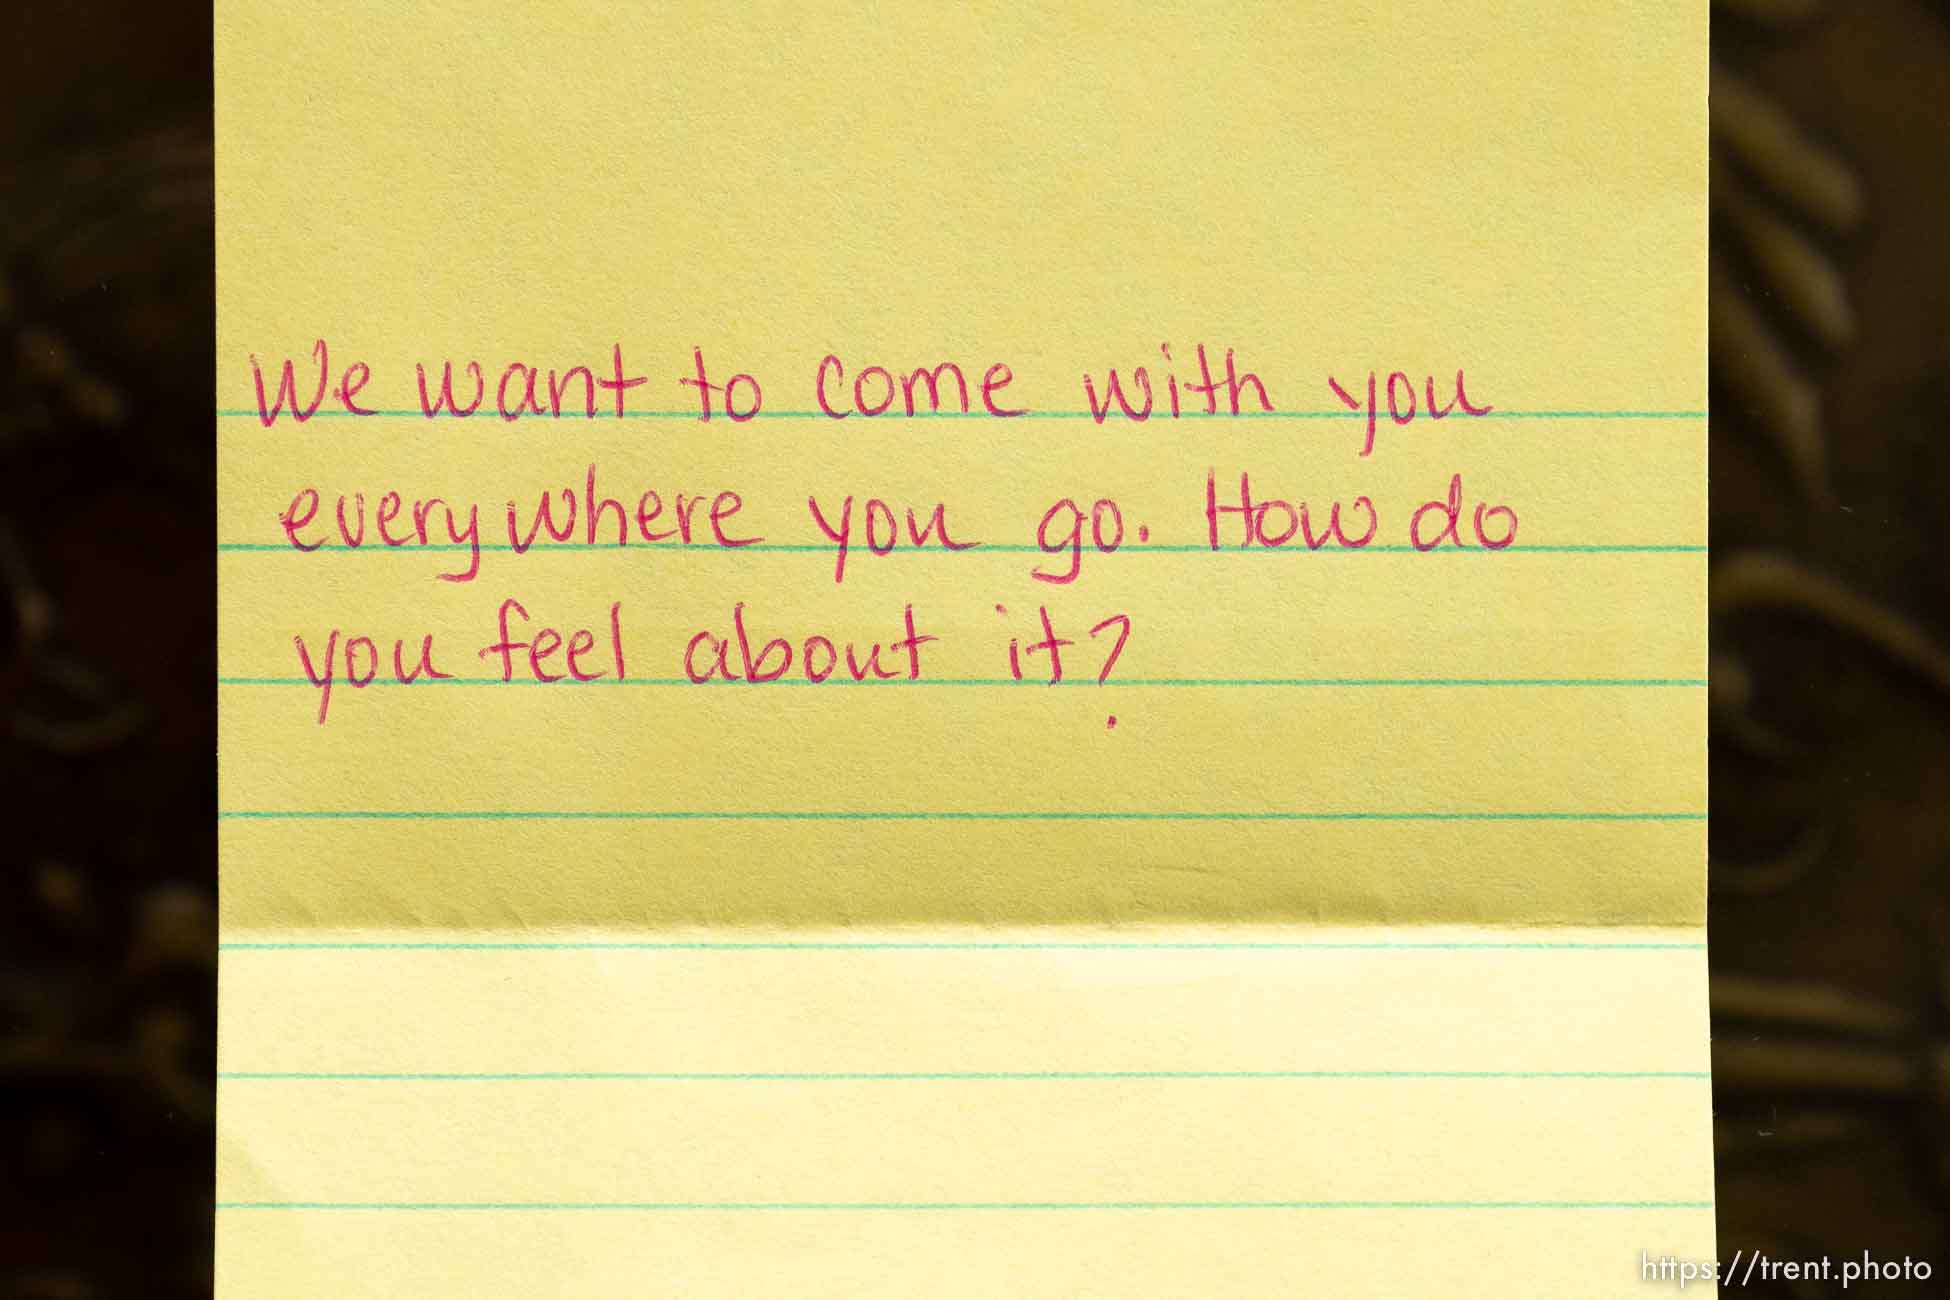 We want to come with you
everywhere you go. How do
you feel about it?
https://trent.photo